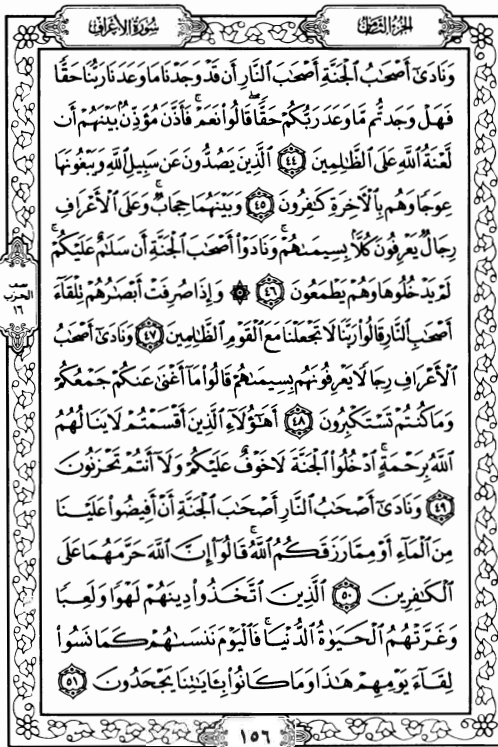 سُورَةُ الأَعْرَافِ الجُزْءُ الثَّامِنُ
وَنَادَىٰٓ أَصْحَٰبُ ٱلْجَنَّةِ أَصْحَٰبَ ٱلنَّارِ أَن قَدْ وَجَدْنَا مَا وَعَدَنَا رَبُّنَا حَقًّا
فَهَلْ وَجَدتُّم مَّا وَعَدَ رَبُّكُمْ حَقًّا ۖ قَالُوا۟ نَعَمْ ۚ فَأَذَّنَ مُؤَذِّنٌۢ بَيْنَهُمْ أَن
لَّعْنَةُ ٱللَّهِ عَلَى ٱلظَّٰلِمِينَ ٤٤ ٱلَّذِينَ يَصُدُّونَ عَن سَبِيلِ ٱللَّهِ وَيَبْغُونَهَا
عِوَجًا وَهُم بِٱلْءَاخِرَةِ كَٰفِرُونَ ٤٥ وَبَيْنَهُمَا حِجَابٌ ۚ وَعَلَى ٱلْأَعْرَافِ
رِجَالٌ يَعْرِفُونَ كُلًّۢا بِسِيمَىٰهُمْ ۚ وَنَادَوْا۟ أَصْحَٰبَ ٱلْجَنَّةِ أَن سَلَٰمٌ عَلَيْكُمْ ۚ
لَمْ يَدْخُلُوهَا وَهُمْ يَطْمَعُونَ ٤٦ ۞ وَإِذَا صُرِفَتْ أَبْصَٰرُهُمْ تِلْقَآءَ
أَصْحَٰبِ ٱلنَّارِ قَالُوا۟ رَبَّنَا لَا تَجْعَلْنَا مَعَ ٱلْقَوْمِ ٱلظَّٰلِمِينَ ٤٧ وَنَادَىٰٓ أَصْحَٰبُ
ٱلْأَعْرَافِ رِجَالًا يَعْرِفُونَهُم بِسِيمَىٰهُمْ قَالُوا۟ مَآ أَغْنَىٰ عَنكُمْ جَمْعُكُمْ
وَمَا كُنتُمْ تَسْتَكْبِرُونَ ٤٨ أَهَٰٓؤُلَآءِ ٱلَّذِينَ أَقْسَمْتُمْ لَا يَنَالُهُمُ
ٱللَّهُ بِرَحْمَةٍ ۚ ٱدْخُلُوا۟ ٱلْجَنَّةَ لَا خَوْفٌ عَلَيْكُمْ وَلَآ أَنتُمْ تَحْزَنُونَ
٤٩ وَنَادَىٰٓ أَصْحَٰبُ ٱلنَّارِ أَصْحَٰبَ ٱلْجَنَّةِ أَنْ أَفِيضُوا۟ عَلَيْنَا
مِنَ ٱلْمَآءِ أَوْ مِمَّا رَزَقَكُمُ ٱللَّهُ ۚ قَالُوٓا۟ إِنَّ ٱللَّهَ حَرَّمَهُمَا عَلَى
ٱلْكَٰفِرِينَ ٥٠ ٱلَّذِينَ ٱتَّخَذُوا۟ دِينَهُمْ لَهْوًا وَلَعِبًا
وَغَرَّتْهُمُ ٱلْحَيَوٰةُ ٱلدُّنْيَا ۚ فَٱلْيَوْمَ نَنسَىٰهُمْ كَمَا نَسُوا۟
لِقَآءَ يَوْمِهِمْ هَٰذَا وَمَا كَانُوا۟ بِـَٔايَٰتِنَا يَجْحَدُونَ ٥١
نصف
الحزب
١٦
١٥٦